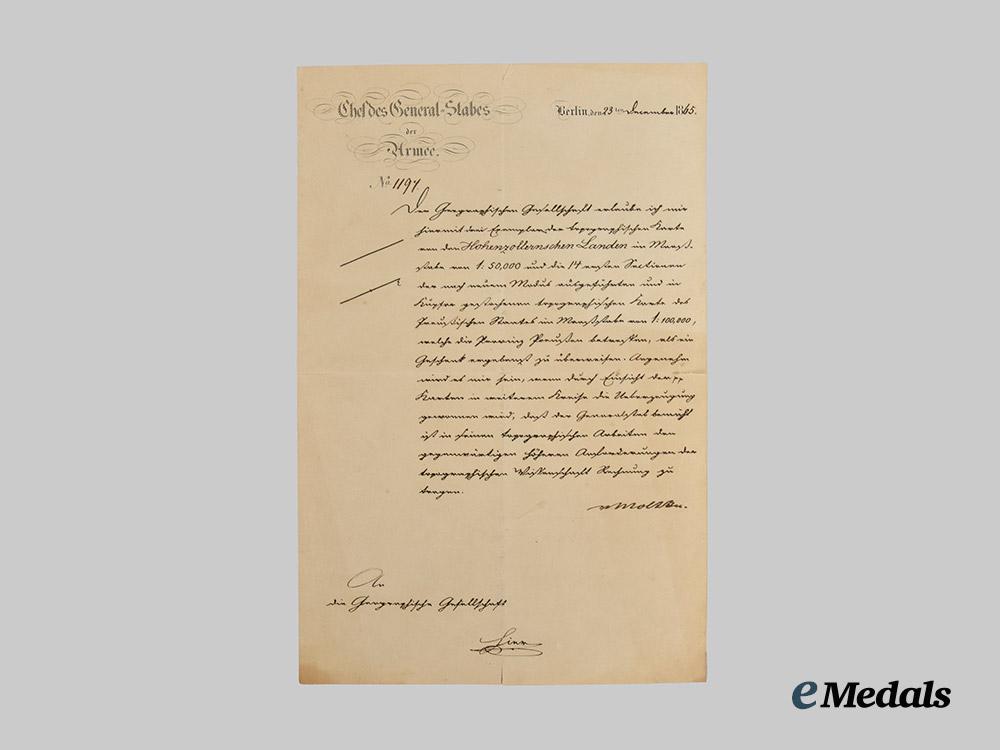 Chef des General-Stabes
der
Armee.
Berlin, den 23ten December 1865.
No. 1197.
Der Geographischen Gesellschaft erlaube ich mir
hiermit drei Exemplare der topographischen Karte
von den Hohenzollernschen Landen im Maaß-
stabe von 1:50,000 und die 14 ersten Sectionen
der nach neuem Modus ausgeführten und in
Kupfer gestochenen topographischen Karte des
Preußischen Staates im Maaßstabe von 1:100,000,
welche die Provinz Preußen betreffen, als ein
Geschenk ergebenst zu überweisen. Angenehm
wird es mir sein, wenn durch Einsicht der pp
Karten in weiterem Kreise die Ueberzeugung
gewonnen wird, daß der Generalstab bemüht
ist in seinen topographischen Arbeiten den
gegenwärtigen höheren Anforderungen der
topographischen Wissenschaft Rechnung zu
tragen.
v Moltke.
An
die Geographische Gesellschaft
Hier
eMedals